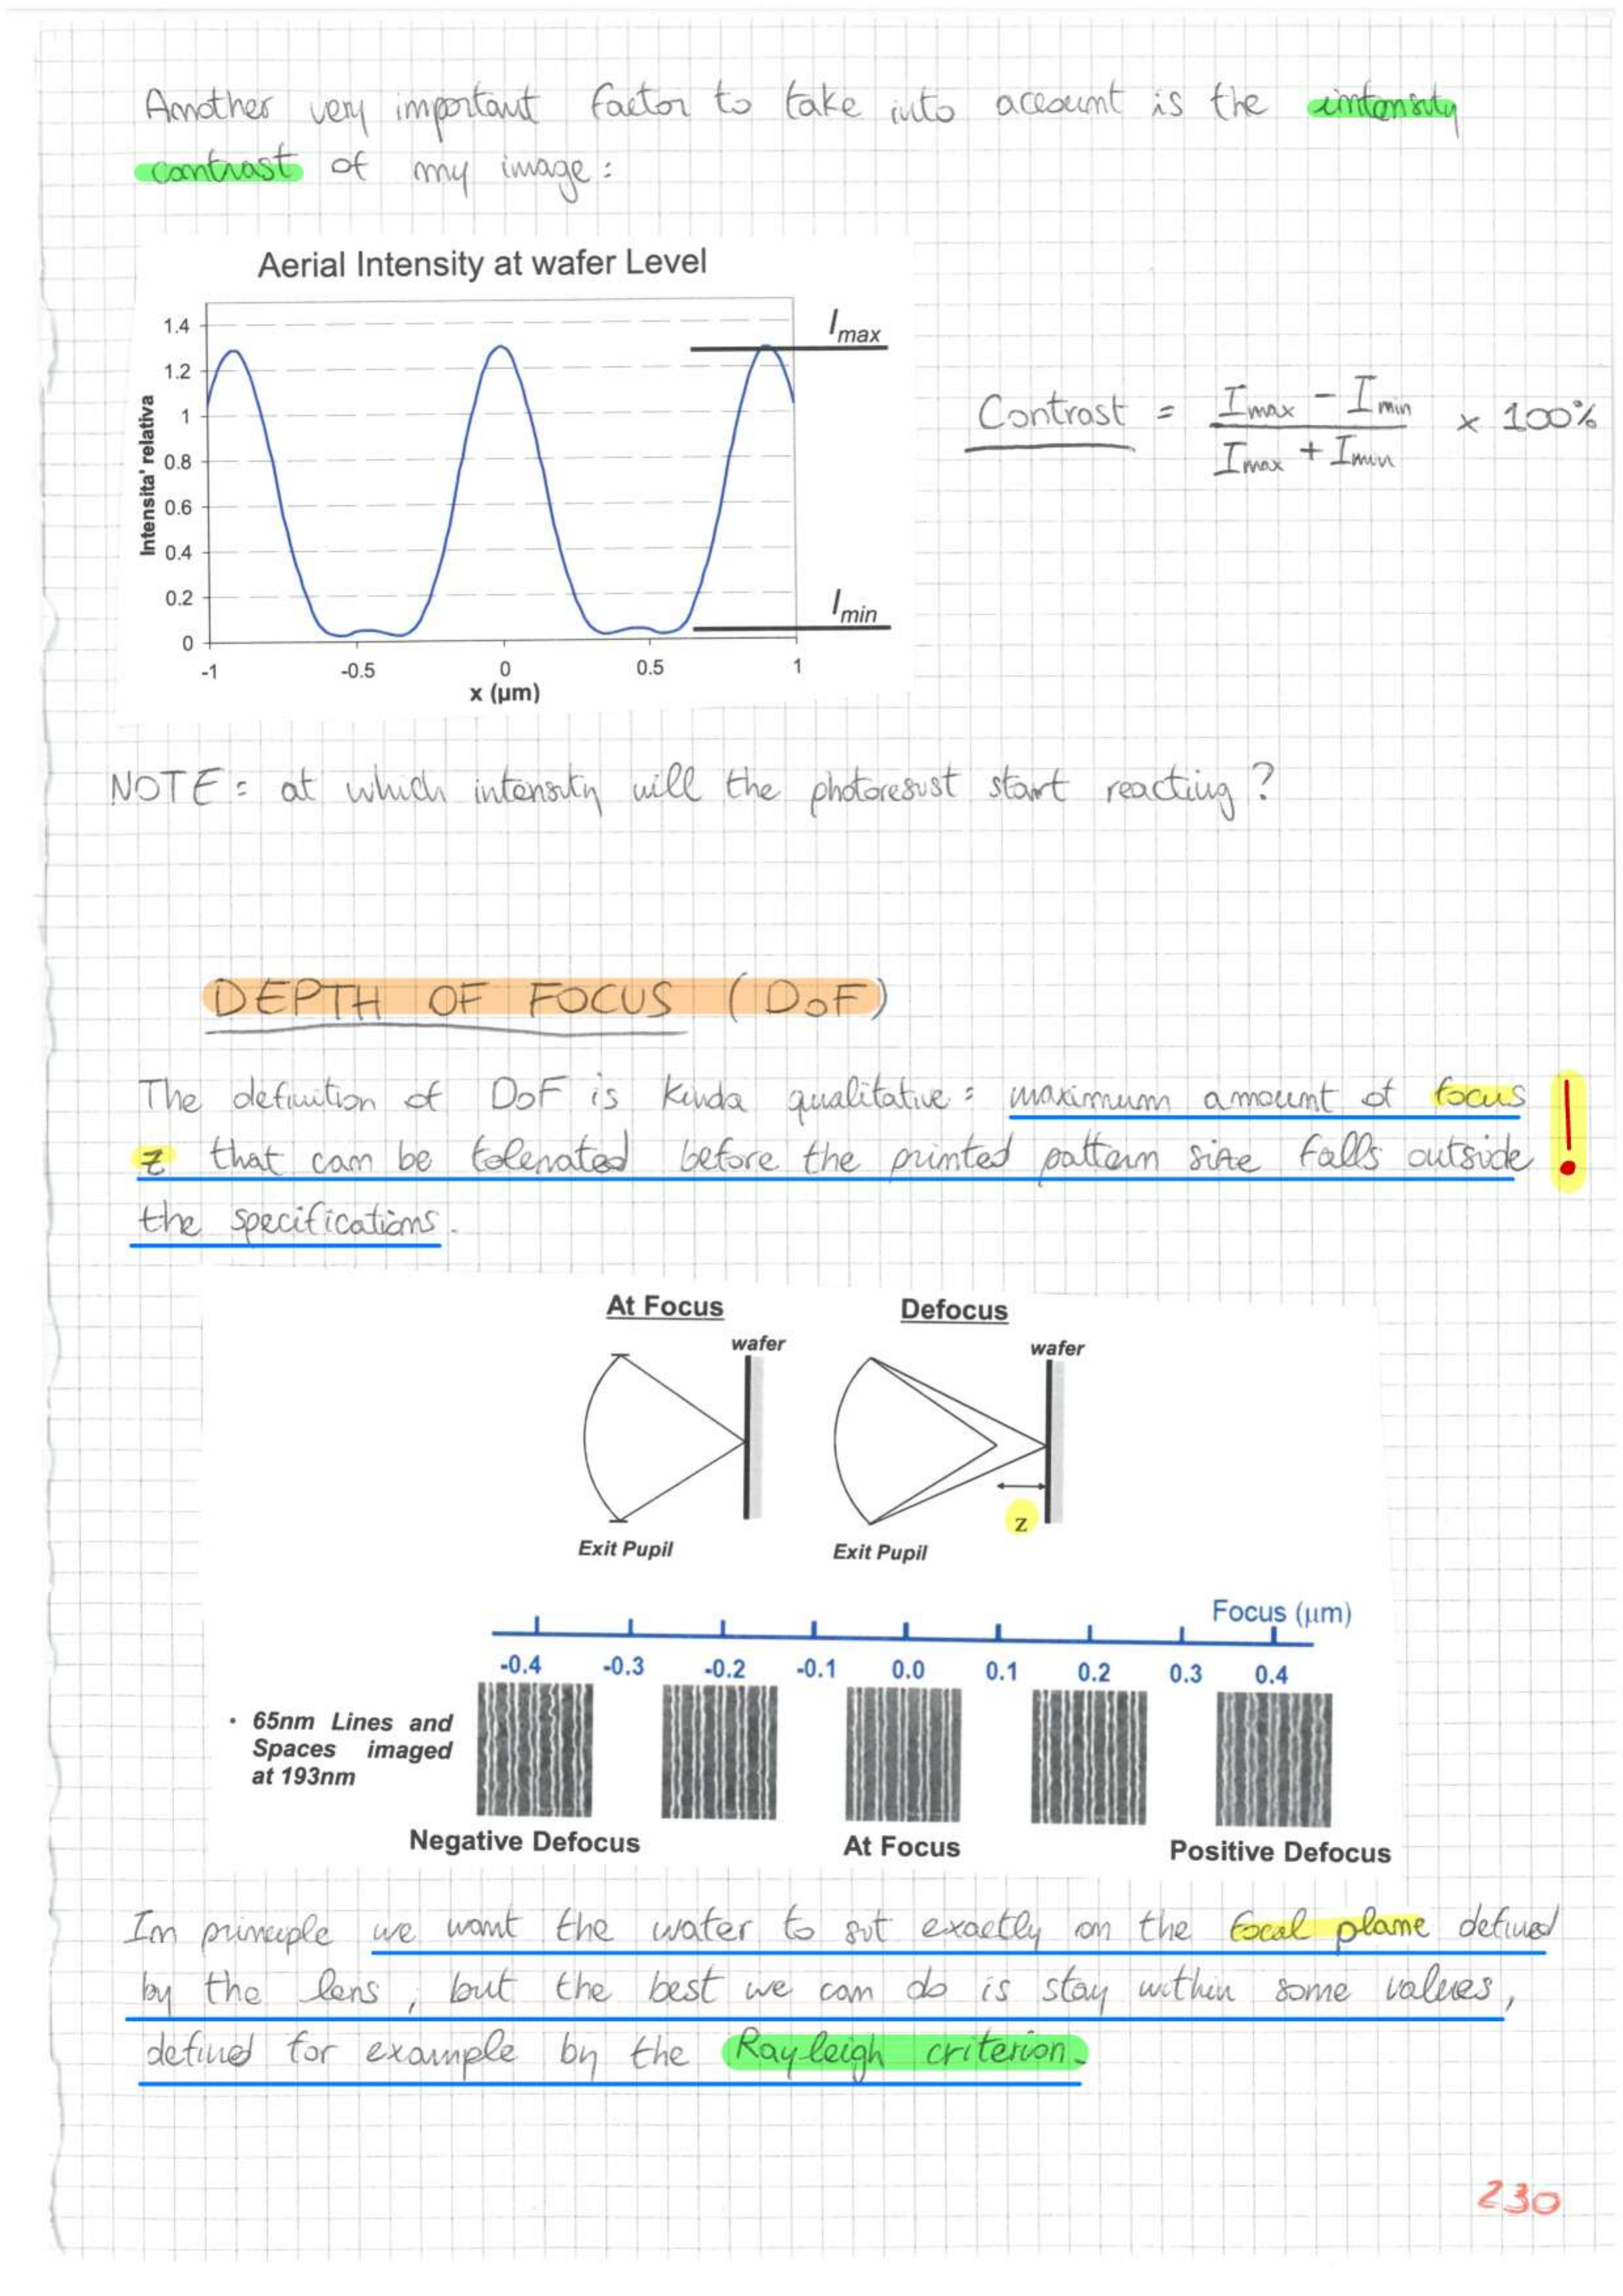 Another very important factor to take into account is the intensity
contrast of my image:
Aerial Intensity at wafer Level
Intensita' relativa
1.4
1.2
1
0.8
0.6
0.4
0.2
0
-1
-0.5
0
0.5
1
x (µm)
Imax
Imin
Contrast = (Imax - Imin) / (Imax + Imin) x 100%
NOTE: at which intensity will the photoresist start reacting?
DEPTH OF FOCUS (DoF)
The definition of DoF is kinda qualitative: maximum amount of focus
z that can be tolerated before the printed pattern size falls outside
the specifications.
!
At Focus
wafer
Exit Pupil
Defocus
wafer
z
Exit Pupil
Focus (µm)
-0.4 -0.3 -0.2 -0.1 0.0 0.1 0.2 0.3 0.4
• 65nm Lines and
Spaces imaged
at 193nm
Negative Defocus At Focus Positive Defocus
In principle we want the wafer to sit exactly on the focal plane defined
by the lens, but the best we can do is stay within some values,
defined for example by the Rayleigh criterion.
230